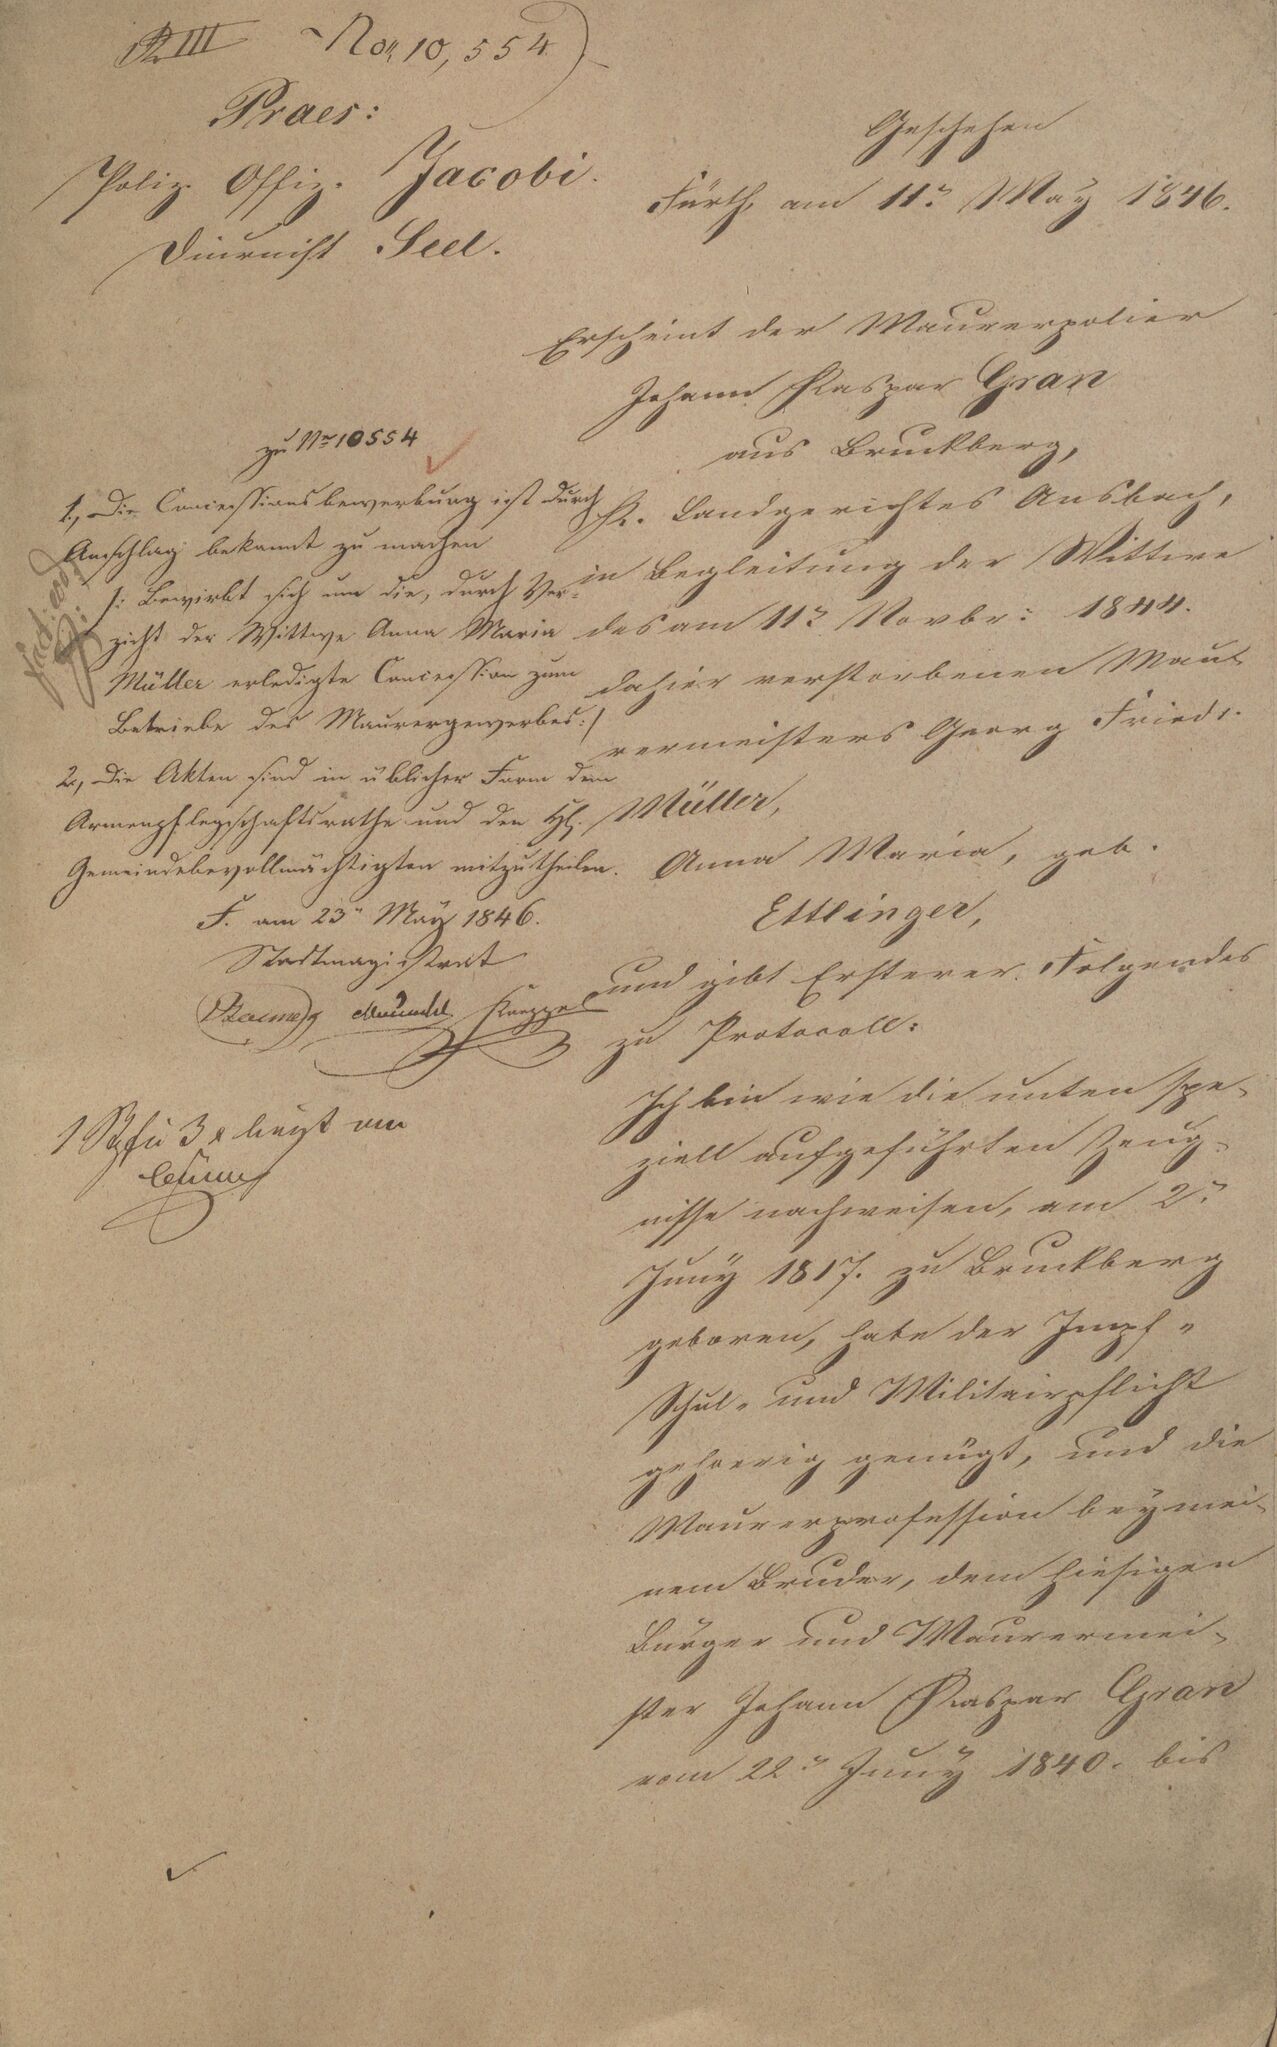 R III No. 10,554
Praes:
Poliz. Offiz. Jacobi.
Diurnist Seel.
Geschehen
Fürth, am 11n May 1846.
Erscheint der Maurerpolier
Johann Kaspar Gran
aus Bruckberg,
K. Landgerichtes Ansbach,
in Begleitung der Wittwe
des am 11n Novbr: 1844.
dahier verstorbenen Mau-
rermeisters Georg Friedr.
Müller,
Anna Maria, geb.
Ettlinger,
und gibt Ersterer Folgendes
zu Protocoll:
Ich bin wie die unten spe-
ziell aufgeführten Zeug-
nisse nachweisen, am 2n
Juny 1817. zu Bruckberg
geboren, habe der Impf-
Schul- und Militairpflicht
gehoerig genügt, und die
Maurerprofession bey mei-
nem Bruder, dem hiesigen
Bürger und Maurermei-
ster Johann Kaspar Gran
vom 22n Juny 1840. bis
zu Nr 10554
1., Die Concessionsbewerbung ist durch
Anschlag bekannt zu machen
/: Bewirbt sich um die, durch Ver-
zicht der Wittwe Anna Maria
Müller erledigte Concession zum
Betriebe des Maurergewerbes :/
2., Die Akten sind in üblicher Form dem
Armenpflegschaftsrathe und den H.
Gemeindebevollmächtigten mitzutheilen.
F. am 23n May 1846.
Stadtmagistrat
liegt an